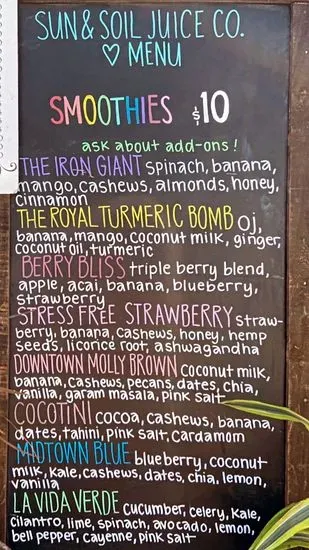 SUN & SOIL JUICE CO.
♡ MENU
SMOOTHIES $10
ask about add-ons!
THE IRON GIANT spinach, banana,
mango, cashews, almonds, honey,
cinnamon
THE ROYAL TURMERIC BOMB OJ,
banana, mango, coconut milk, ginger,
coconut oil, turmeric
BERRY BLISS triple berry blend,
apple, acai, banana, blueberry,
strawberry
STRESS FREE STRAWBERRY straw-
berry, banana, cashews, honey, hemp
seeds, licorice root, ashwagandha
DOWNTOWN MOLLY BROWN coconut milk,
banana, cashews, pecans, dates, chia,
vanilla, garam masala, pink salt
COCOTINI cocoa, cashews, banana,
dates, tahini, pink salt, cardamom
MIDTOWN BLUE blueberry, coconut
milk, kale, cashews, dates, chia, lemon,
vanilla
LA VIDA VERDE cucumber, celery, kale,
cilantro, lime, spinach, avocado, lemon,
bell pepper, cayenne, pink salt